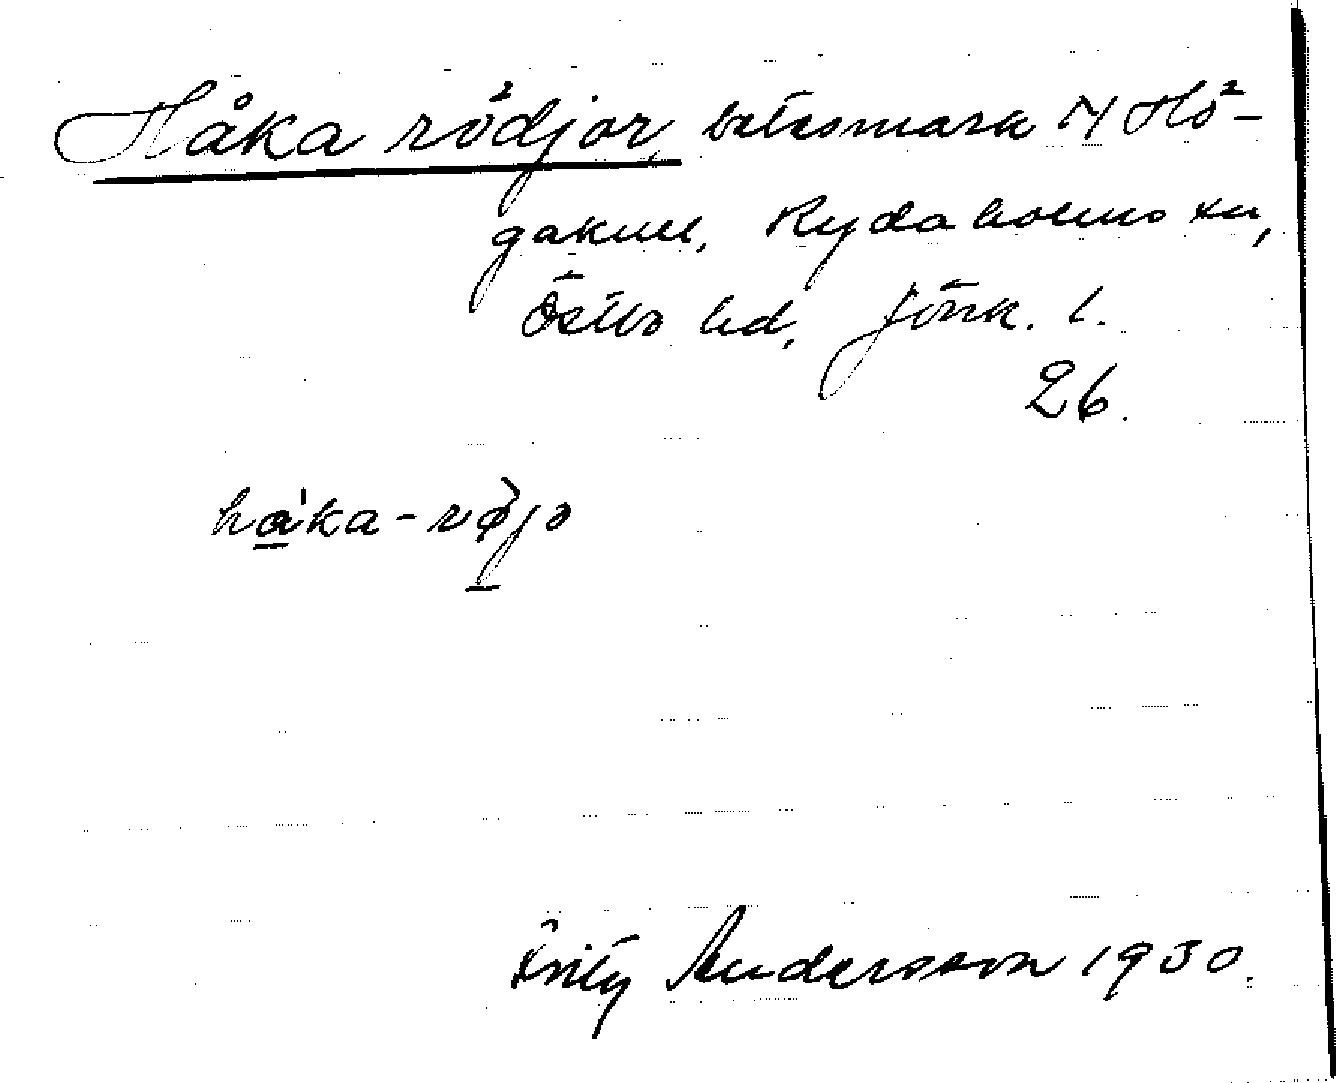 Håka rödjor, betesmark N Hö-
gakull, Rydaholms sn,
Östbo hd, Jönk. l.
26.
håka-røjo
Fritz Andersson 1930.